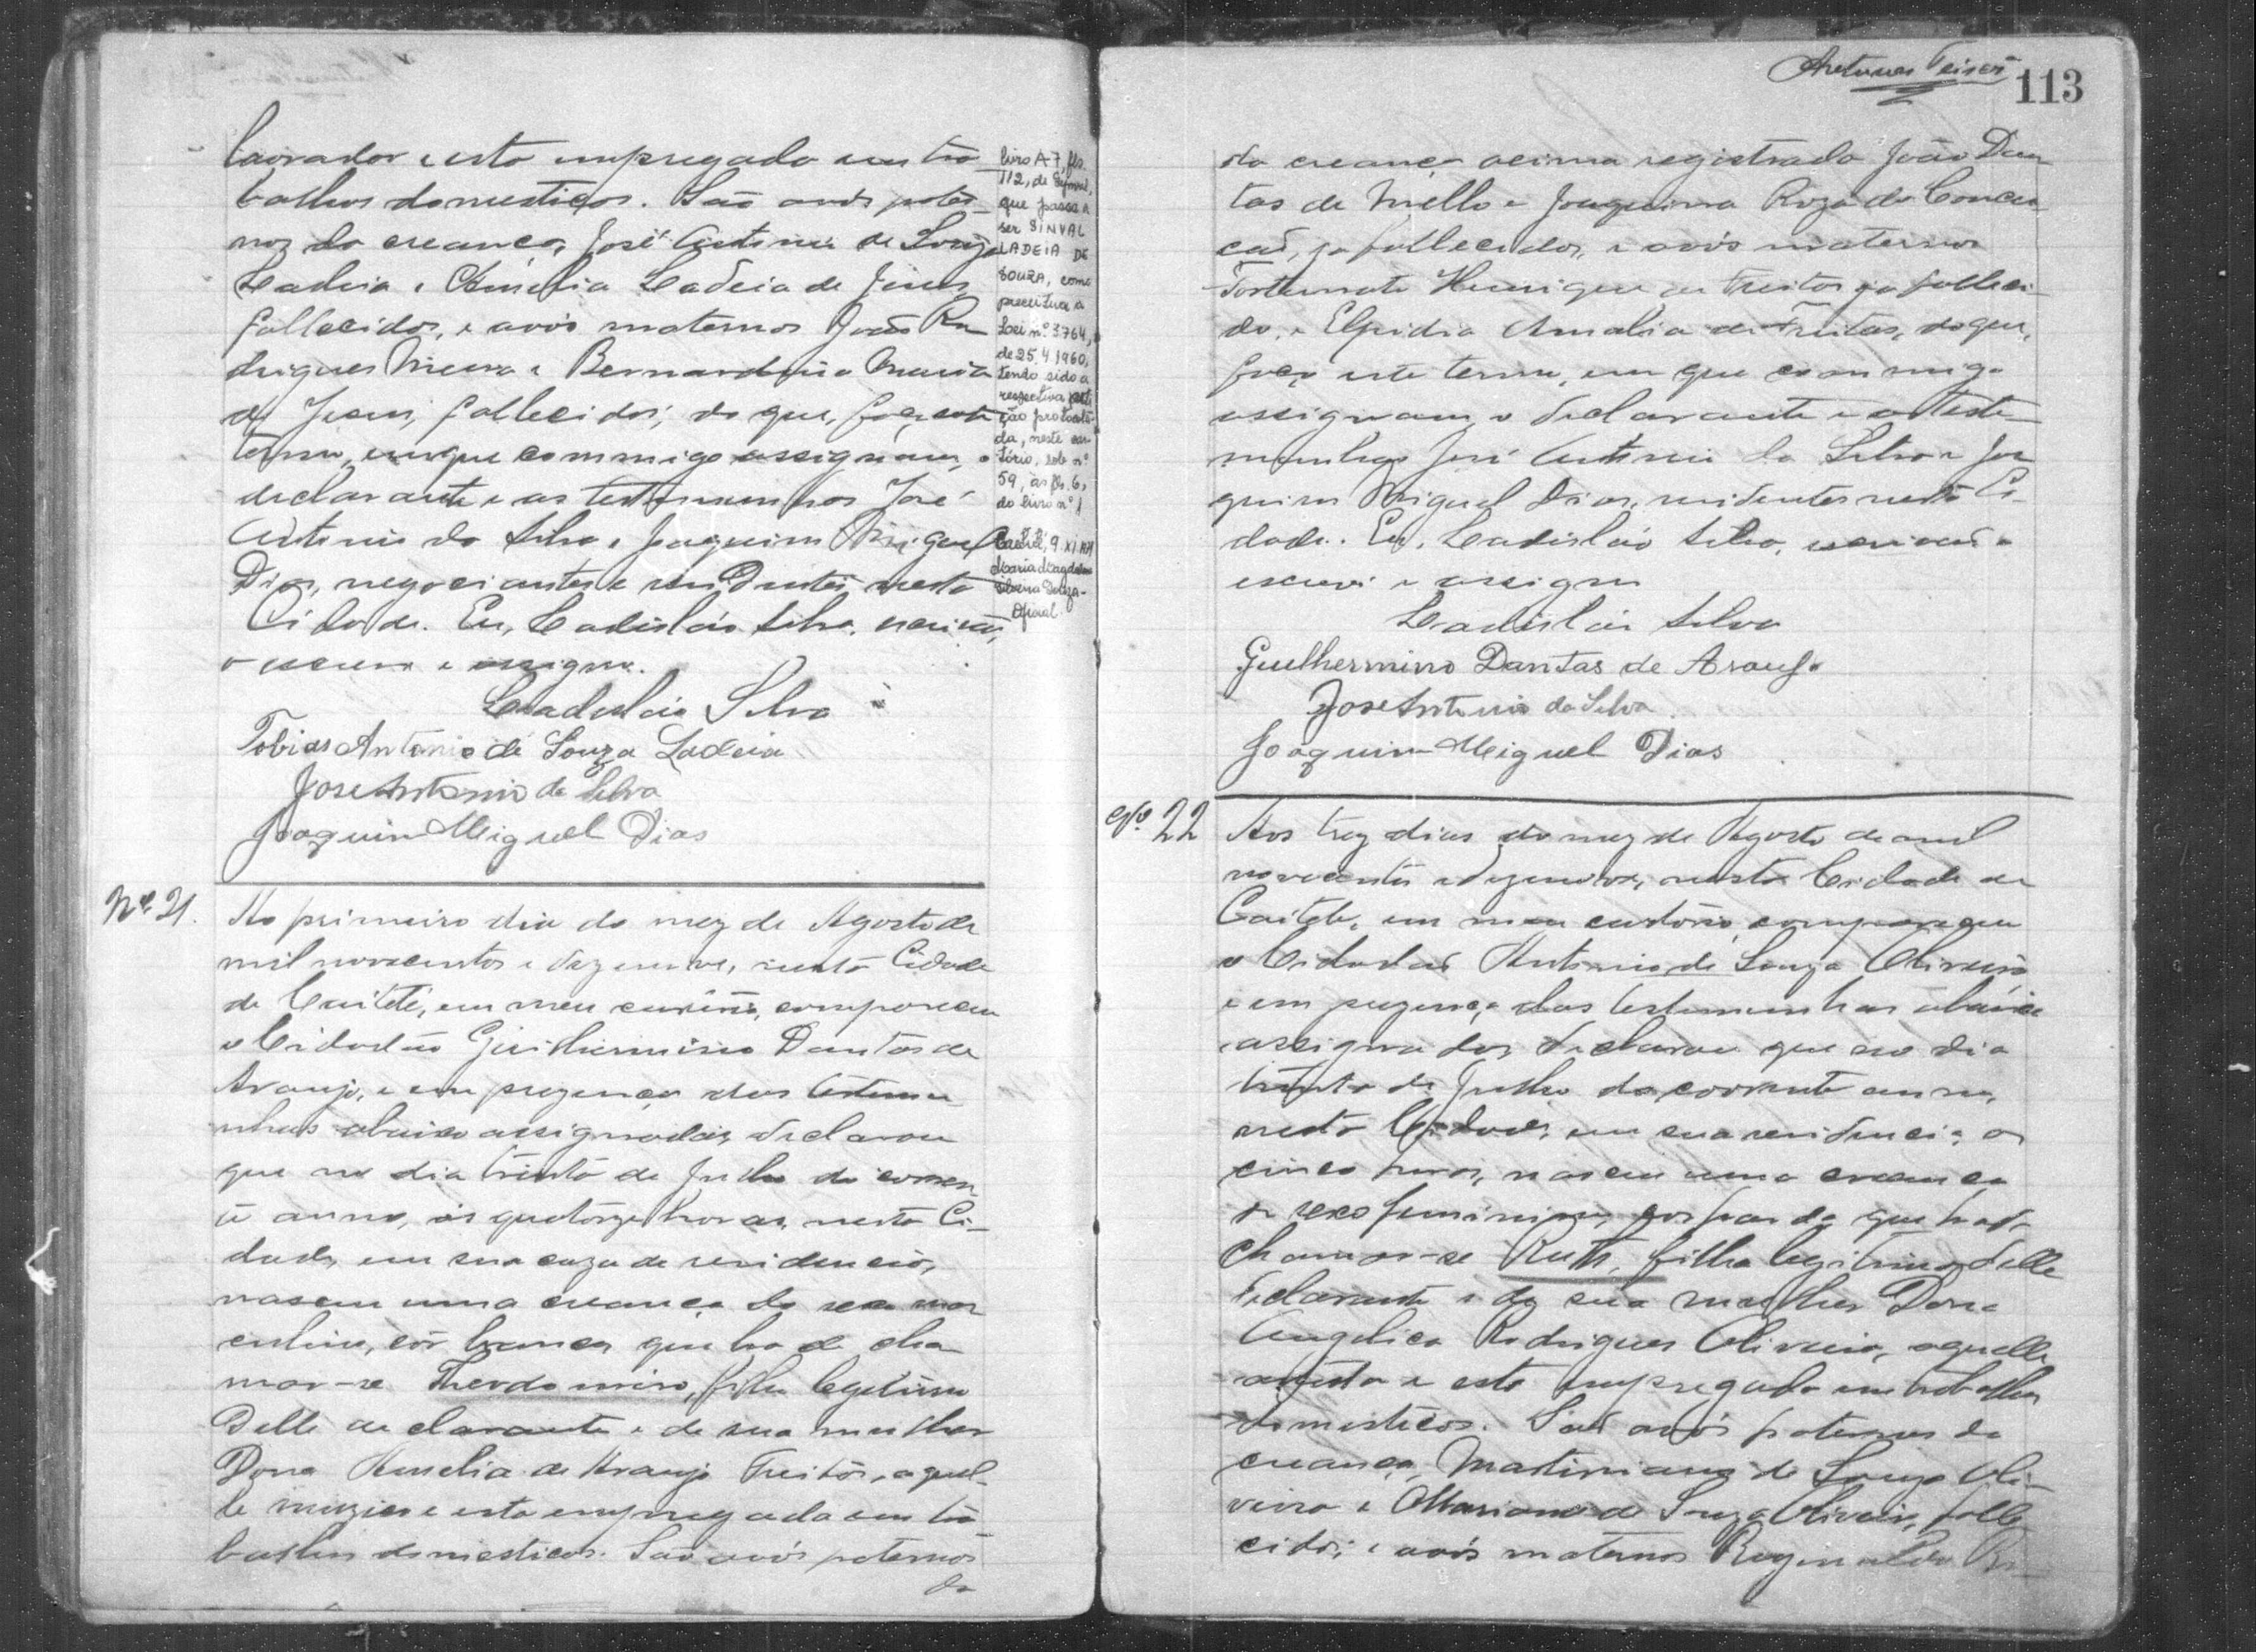 lavrador e esta empregada em tra
balhos domesticos. São avós pater
nos da creança, José Antonio de Souza
Ladeia e Amélia Ladeia de Jesus,
fallecidos, e avós maternos João Ro
drigues Vieira e Bernardina Maria
de Jesus, fallecidos; do que, faço este
termo, em que commigo assignam, o
declarante e as testemunhas José
Antonio da Silva e Joaquim Miguel
Dias, negociantes e residentes nesta
Cidade. Eu, Ladisláo Silva, escrivão,
o escrevi e assigno.
Ladisláo Silva
Tobias Antonio de Souza Ladeia
José Antonio da Silva
Joaquim Miguel Dias
livro A-7, fls.
112, de
que passa a
ser SINVAL
LADEIA DE
SOUZA, como
preceitua a
Lei nº 3.764,
de 25.4.1960,
tendo sido a
respectiva peti
ção protocola
da, neste car
tório, sob nº
59, às fls. 6,
do livro nº 1
Caetité, 9
Maria Magdalena
Souza-
Oficial
Nº 21.
Ao primeiro dia do mez de Agosto de
mil novecentos e dezenove, nesta Cidade
de Caiteté, em meu cartorio, compareceu
o Cidadão Guilhermino Dantas de
Araujo, e em prezença das testemu
nhas abaixo assignadas, declarou
que no dia trinta de Julho do corren
te anno, ás quatorze horas, nesta Ci-
dade, em sua caza de residencia,
nasceu uma creança do sexo mas
culino, côr branca, que ha de cha
mar-se Theodomiro, filho legitimo
delle declarante e de sua mulher
Dona Amelia de Araujo Freitas, aquel-
le muzico e esta empregada em tra
balhos domesticos. São avós paternos
da
Antunes Teixeira
113
da creança acima registrada João Dan
tas de Mello e Joaquina Roza da Concei
ção, já fallecidos, e avós maternos
Fortunato Henrique de Freitas já falleci-
do, e Elpidia Amalia de Freitas, do que,
faço este termo, em que commigo
assignam, o declarante e as teste-
munhas José Antonio da Silva e Joa
quim Miguel Dias, residentes nesta Ci-
dade. Eu, Ladisláo Silva, escrivão o
escrevi e assigno
Ladisláo Silva
Guilhermino Dantas de Araujo
José Antonio da Silva
Joaquim Miguel Dias
Nº 22
Aos trez dias do mez de Agosto de mil
novecentos e dezenove, nesta Cidade de
Caiteté, em meu cartorio, compareceu
o Cidadão Antonio de Souza Oliveira
e em prezença das testemunhas abaixo
assignadas, declarou que no dia
trinta de Julho do corrente anno,
nesta Cidade, em sua residencia, as
cinco horas, nasceu uma creança
do sexo feminino, côr parda que ha de
chamar-se Ruth, filha legitima delle
declarante e de sua mulher Dona
Angelica Rodrigues Oliveira, aquelle
artista e esta empregada em trabalhos
domesticos. São avós paternos da
creança, Martiniano de Souza Oli-
veira e Marianna de Souza Oliveira, falle
cidos; e avós maternos Ro-